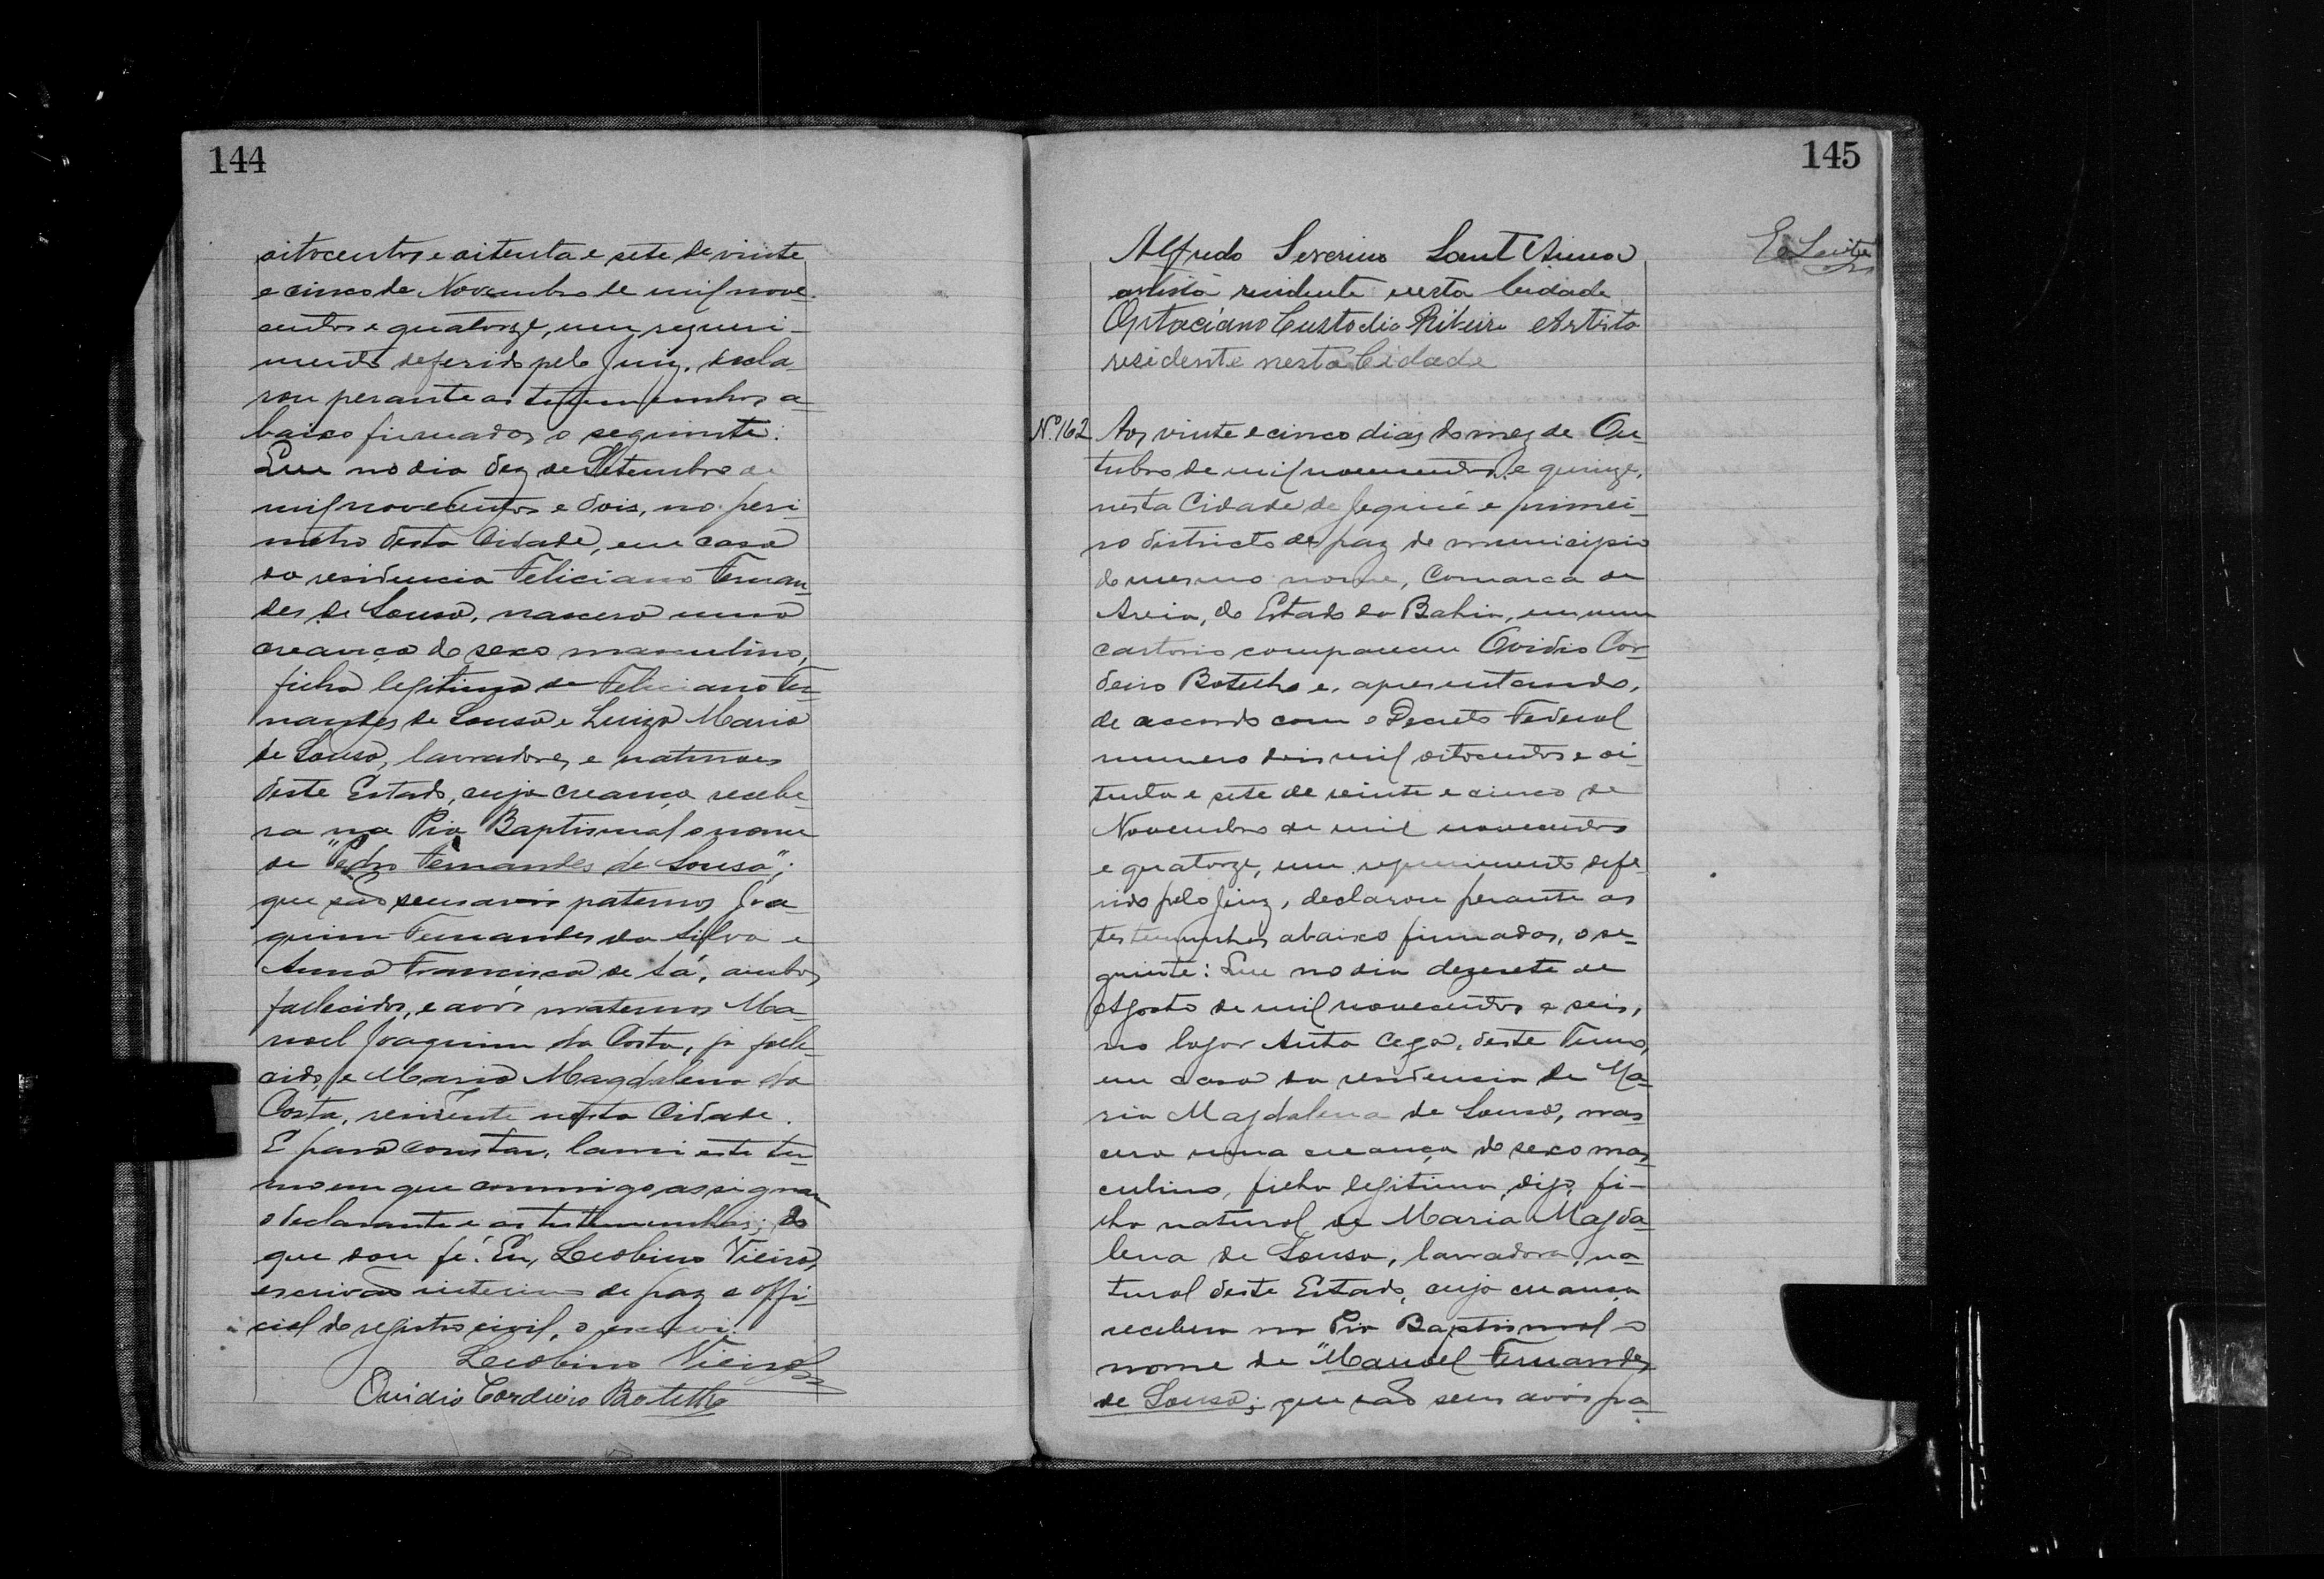 144
oitocentos e oitenta e sete de vinte
e cinco de Novembro de mil nove-
centos e quatorze, um requeri-
mento deferido pelo Juiz, decla-
rou perante as testemunhas a-
baixo firmados o seguinte:
Que no dia dez de Setembro de
mil novecentos e dois, no peri-
metro desta Cidade, em casa
da residencia Feliciano Fernan-
des de Sousa, nascera uma
creança do sexo masculino,
filha legitima de Feliciano Fer-
nandes de Sousa e Luiza Maria
de Sousa, lavradores e naturaes
deste Estado, cuja creança recebe-
ra na Pia Baptismal o nome
de "Pedro Fernandes de Sousa";
que são seus avós paternos Joa-
quim Fernandes da Silva e
Anna Francisca de Sá, ambos
fallecidos, e avós maternos Ma-
noel Joaquim da Costa, já falle-
cido, e Maria Magdalena da
Costa, residente nesta Cidade.
E para constar, lavrei este ter-
mo em que commigo assignam
o declarante e as testemunhas; do
que dou fé. Eu, Leobino Vieira,
escrivão interino de paz e offi-
cial do registro civil, o escrevi.
Leobino Vieira
Ovidio Cordeiro Botelho
145
Alfredo Severino Sant'Anna
artista residente nesta Cidade
Optaciano Custodio Ribeiro Artista
residente nesta Cidade
Nº 162 Aos vinte e cinco dias do mez de Ou-
tubro de mil novecentos e quinze,
nesta Cidade de Jequié e primei-
ro districto de paz de municipio
do mesmo nome, Comarca de
Areia, do Estado da Bahia, em meu
cartorio compareceu Ovidio Cor-
deiro Botelho e, apresentando,
de accordo com o Decreto Federal
numero dois mil oitocentos e oi-
tenta e sete de vinte e cinco de
Novembro de mil novecentos
e quatorze, um requerimento defe-
rido pelo Juiz, declarou perante as
testemunhas abaixo firmadas, o se-
guinte: Que no dia dezesete de
Agosto de mil novecentos e seis,
no lugar Anta Cega, deste Termo,
em casa da residencia de Ma-
ria Magdalena de Sousa, nas-
cera uma creança do sexo mas-
culino, filha legitima, digo, fi-
lho natural de Maria Magda-
lena de Sousa, lavradora, na-
tural deste Estado, cuja creança
recebera na Pia Baptismal o
nome de "Manoel Fernandes
de Sousa; que são seus avós pa-